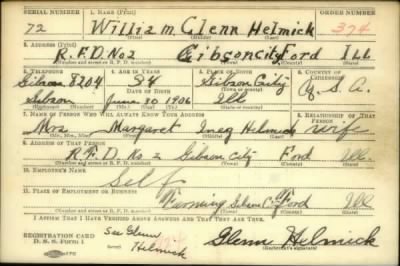 SERIAL NUMBER 1. NAME (Print) ORDER NUMBER
72 William Glenn Helmick 374
(First) (Middle) (Last)
2. ADDRESS (Print)
R.F.D. No2 Gibson City Ford Ill
(Number and street or R. F. D. number) (Town) (County) (State)
3. TELEPHONE 4. AGE IN YEARS 5. PLACE OF BIRTH 6. COUNTRY OF CITIZENSHIP
Gibson 8204 34 Gibson City U.S.A.
DATE OF BIRTH (Town or county)
Gibson June 10 1906 Ill
(Exchange) (Number) (Mo.) (Day) (Yr.) (State or country)
7. NAME OF PERSON WHO WILL ALWAYS KNOW YOUR ADDRESS 8. RELATIONSHIP OF THAT PERSON
Mrs. Margaret Inez Helmick Wife
(Mr., Mrs., Miss) (First) (Middle) (Last)
9. ADDRESS OF THAT PERSON
R.F.D. No 2 Gibson City Ford Ill.
(Number and street or R. F. D. number) (Town) (County) (State)
10. EMPLOYER'S NAME
Self
11. PLACE OF EMPLOYMENT OR BUSINESS
Farming Gibson City Ford Ill
(Number and street or R. F. D. number) (Town) (County) (State)
I AFFIRM THAT I HAVE VERIFIED ABOVE ANSWERS AND THAT THEY ARE TRUE.
REGISTRATION CARD See Glenn Glenn Helmick
D. S. S. Form 1 Helmick (Registrant's signature)